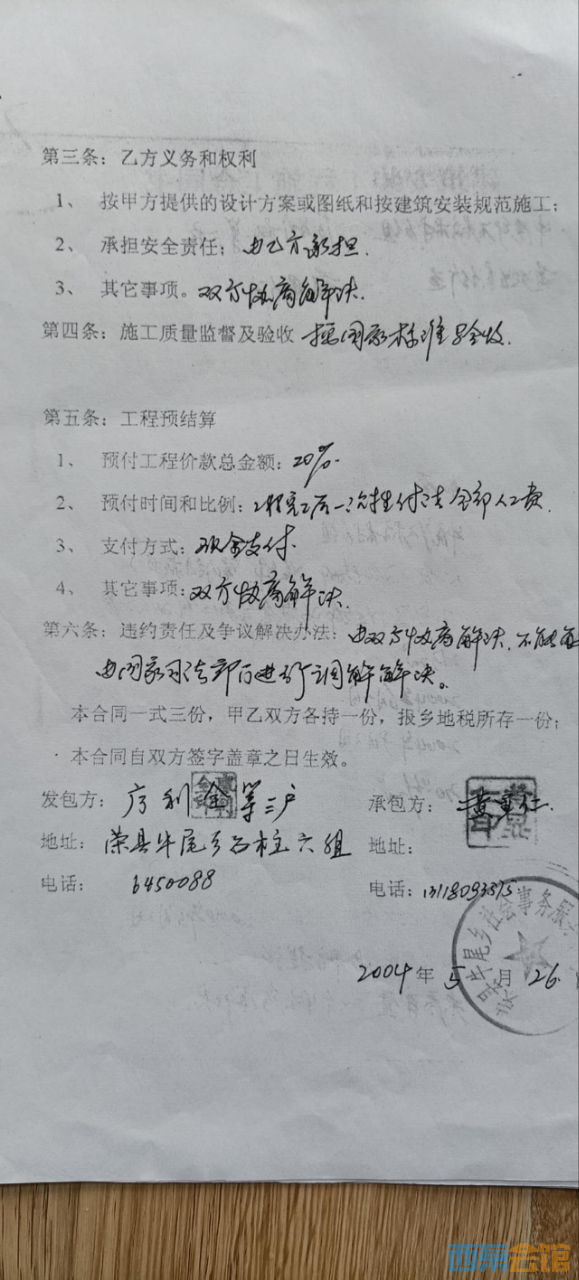 第三条：乙方义务和权利
1、 按甲方提供的设计方案或图纸和按建筑安装规范施工；
2、 承担安全责任；由乙方承担.
3、 其它事项。双方协商解决.
第四条：施工质量监督及验收 按国家标准验收.
第五条：工程预结算
1、 预付工程价款总金额：20%.
2、 预付时间和比例：工程完工后一次性付清全部人工费.
3、 支付方式：现金支付.
4、 其它事项：双方协商解决.
第六条：违约责任及争议解决办法：由双方协商解决.不能
由国家司法部门进行调解解决。
本合同一式三份，甲乙双方各持一份，报乡地税所存一份；
本合同自双方签字盖章之日生效。
发包方： 利金等三户 承包方：黄
地址：荣县牛尾乡石柱六组 地址：
电话： 6450088 电话：13118093
牛尾乡社会事务服
2004年5月26
西祠会馆